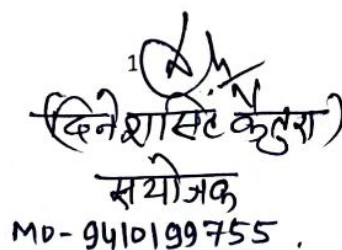 1
(दिनेश सिंह कैतुरा)
सयोजक
MO-9410199755.